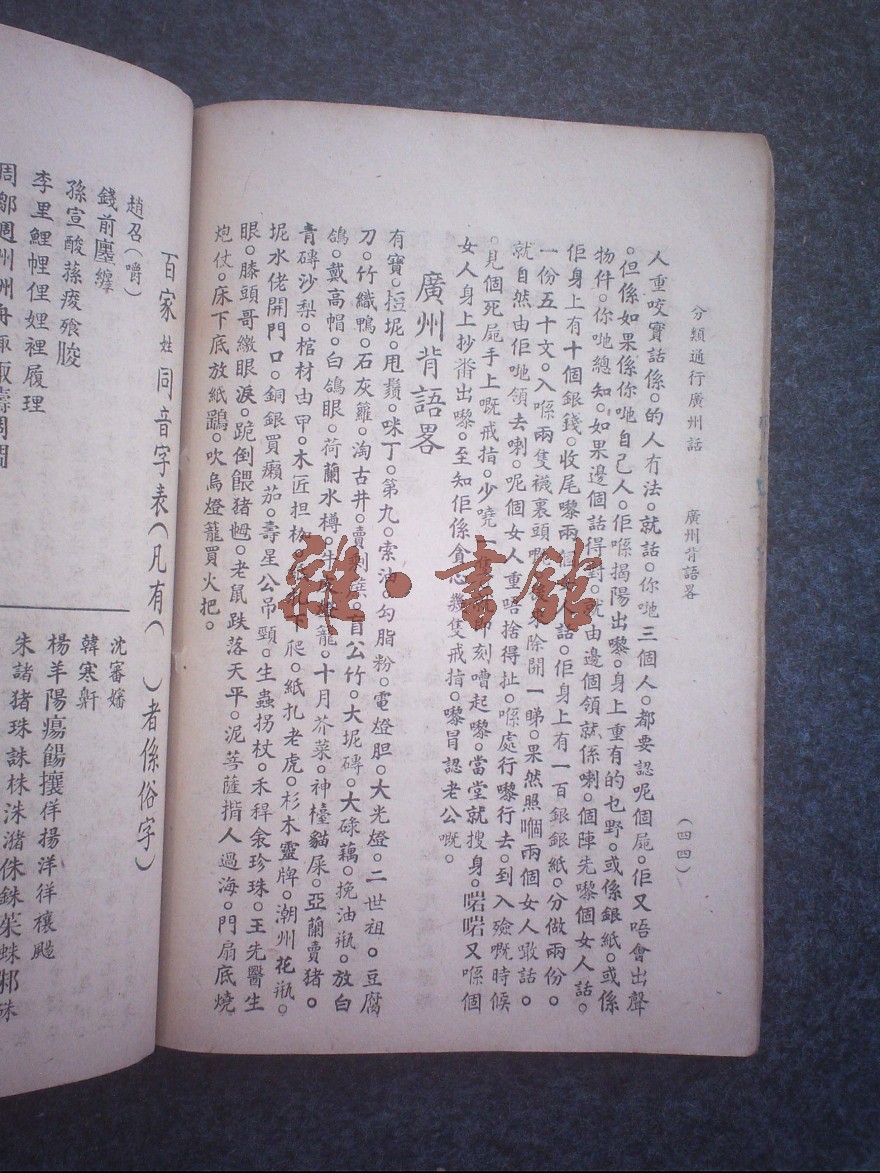 分類通行廣州話　廣州背語畧　(四四)
人重咬實話係。的人冇法。就話。你哋三個人。都要認呢個屍。佢又唔會出聲
。但係如果係你哋自己人。佢喺揭陽出嚟。身上重有的乜野。或係銀紙。或係
物件。你哋總知。如果邊個話得對。就由邊個領就係喇。個陣先嚟個女人話。
佢身上有十個銀錢。收尾嚟兩個女人話。佢身上有一百銀銀紙。分做兩份。
一份五十文。入喺兩隻襪裏頭嘅。除開一睇。果然照嗰兩個女人噉話。
就自然由佢哋領去喇。呢個女人重唔捨得扯。喺處行嚟行去。到入殮嘅時候
。見個死屍手上嘅戒指。少曉一隻。即刻嘈起嚟。當堂就搜身。啱啱又喺個
女人身上抄番出嚟。至知佢係貪心幾隻戒指。嚟冒認老公嘅。
廣州背語畧
有寶。揼坭。甩鬚。咪丁。第九。索油。勾脂粉。電燈胆。大光燈。二世祖。豆腐
刀。竹織鴨。石灰籮。淘古井。賣剩蔗。盲公竹。大坭磚。大碌藕。挽油瓶。放白
鴿。戴高帽。白鴿眼。荷蘭水樽。牛皮燈龍。十月芥菜。神檯貓屎。亞蘭賣猪。
青磚沙梨。棺材由甲。木匠担枷。下爬。紙扎老虎。杉木靈牌。潮州花瓶。
坭水佬開門口。銅銀買癩茄。壽星公吊頸。生蟲拐杖。禾稈衾珍珠。王先醫生
眼。膝頭哥繳眼淚。跪倒餵猪乸。老鼠跌落天平。泥菩薩揹人過海。門扇底燒
炮仗。床下底放紙鷂。吹烏燈籠買火把。
百家姓同音字表(凡有( )者係俗字)
趙召(嚼)
錢前廛纏
孫宣酸蓀痠飱
李里鯉悝俚娌裡履理
周鄒週州洲舟
沈審嬸
韓寒鼾
楊羊陽瘍餳攘佯揚洋徉穰颺
朱諸猪珠誅株洙瀦侏銖茱蛛邾
雜·書館